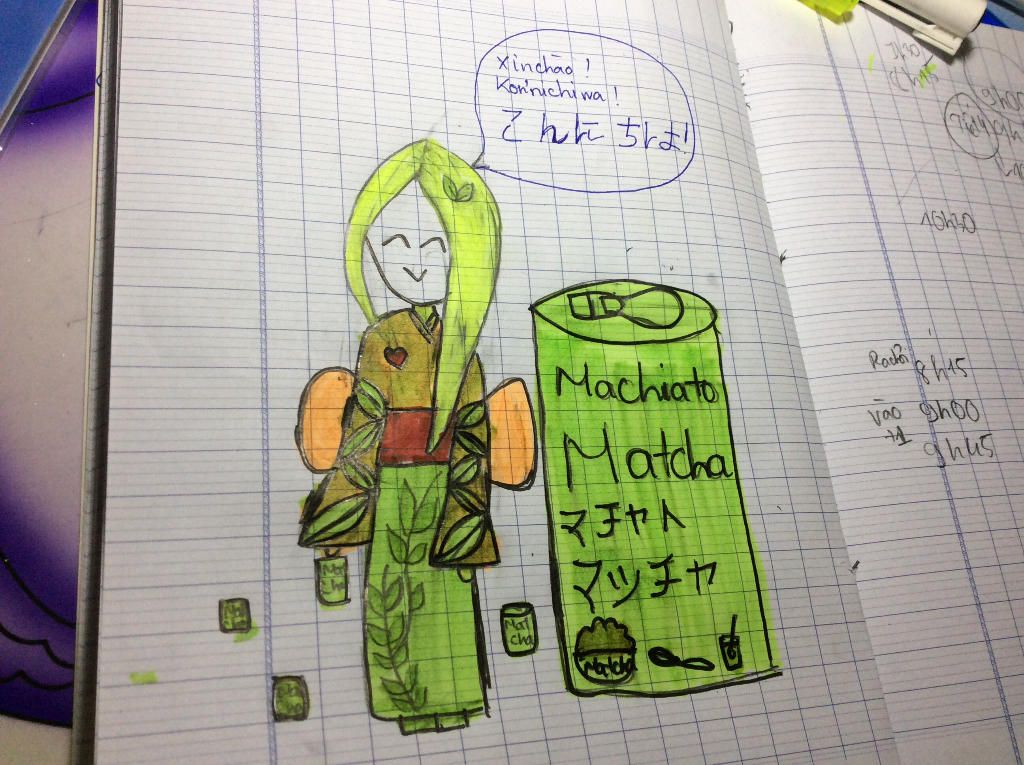 Xin chào !
Kon'nichiwa !
こんにちは!
Machiato
Matcha
マチャト
マッチャ
Matcha
Mat
cha
9h00
10h30
8h15
vào 9h00
+1
9h45